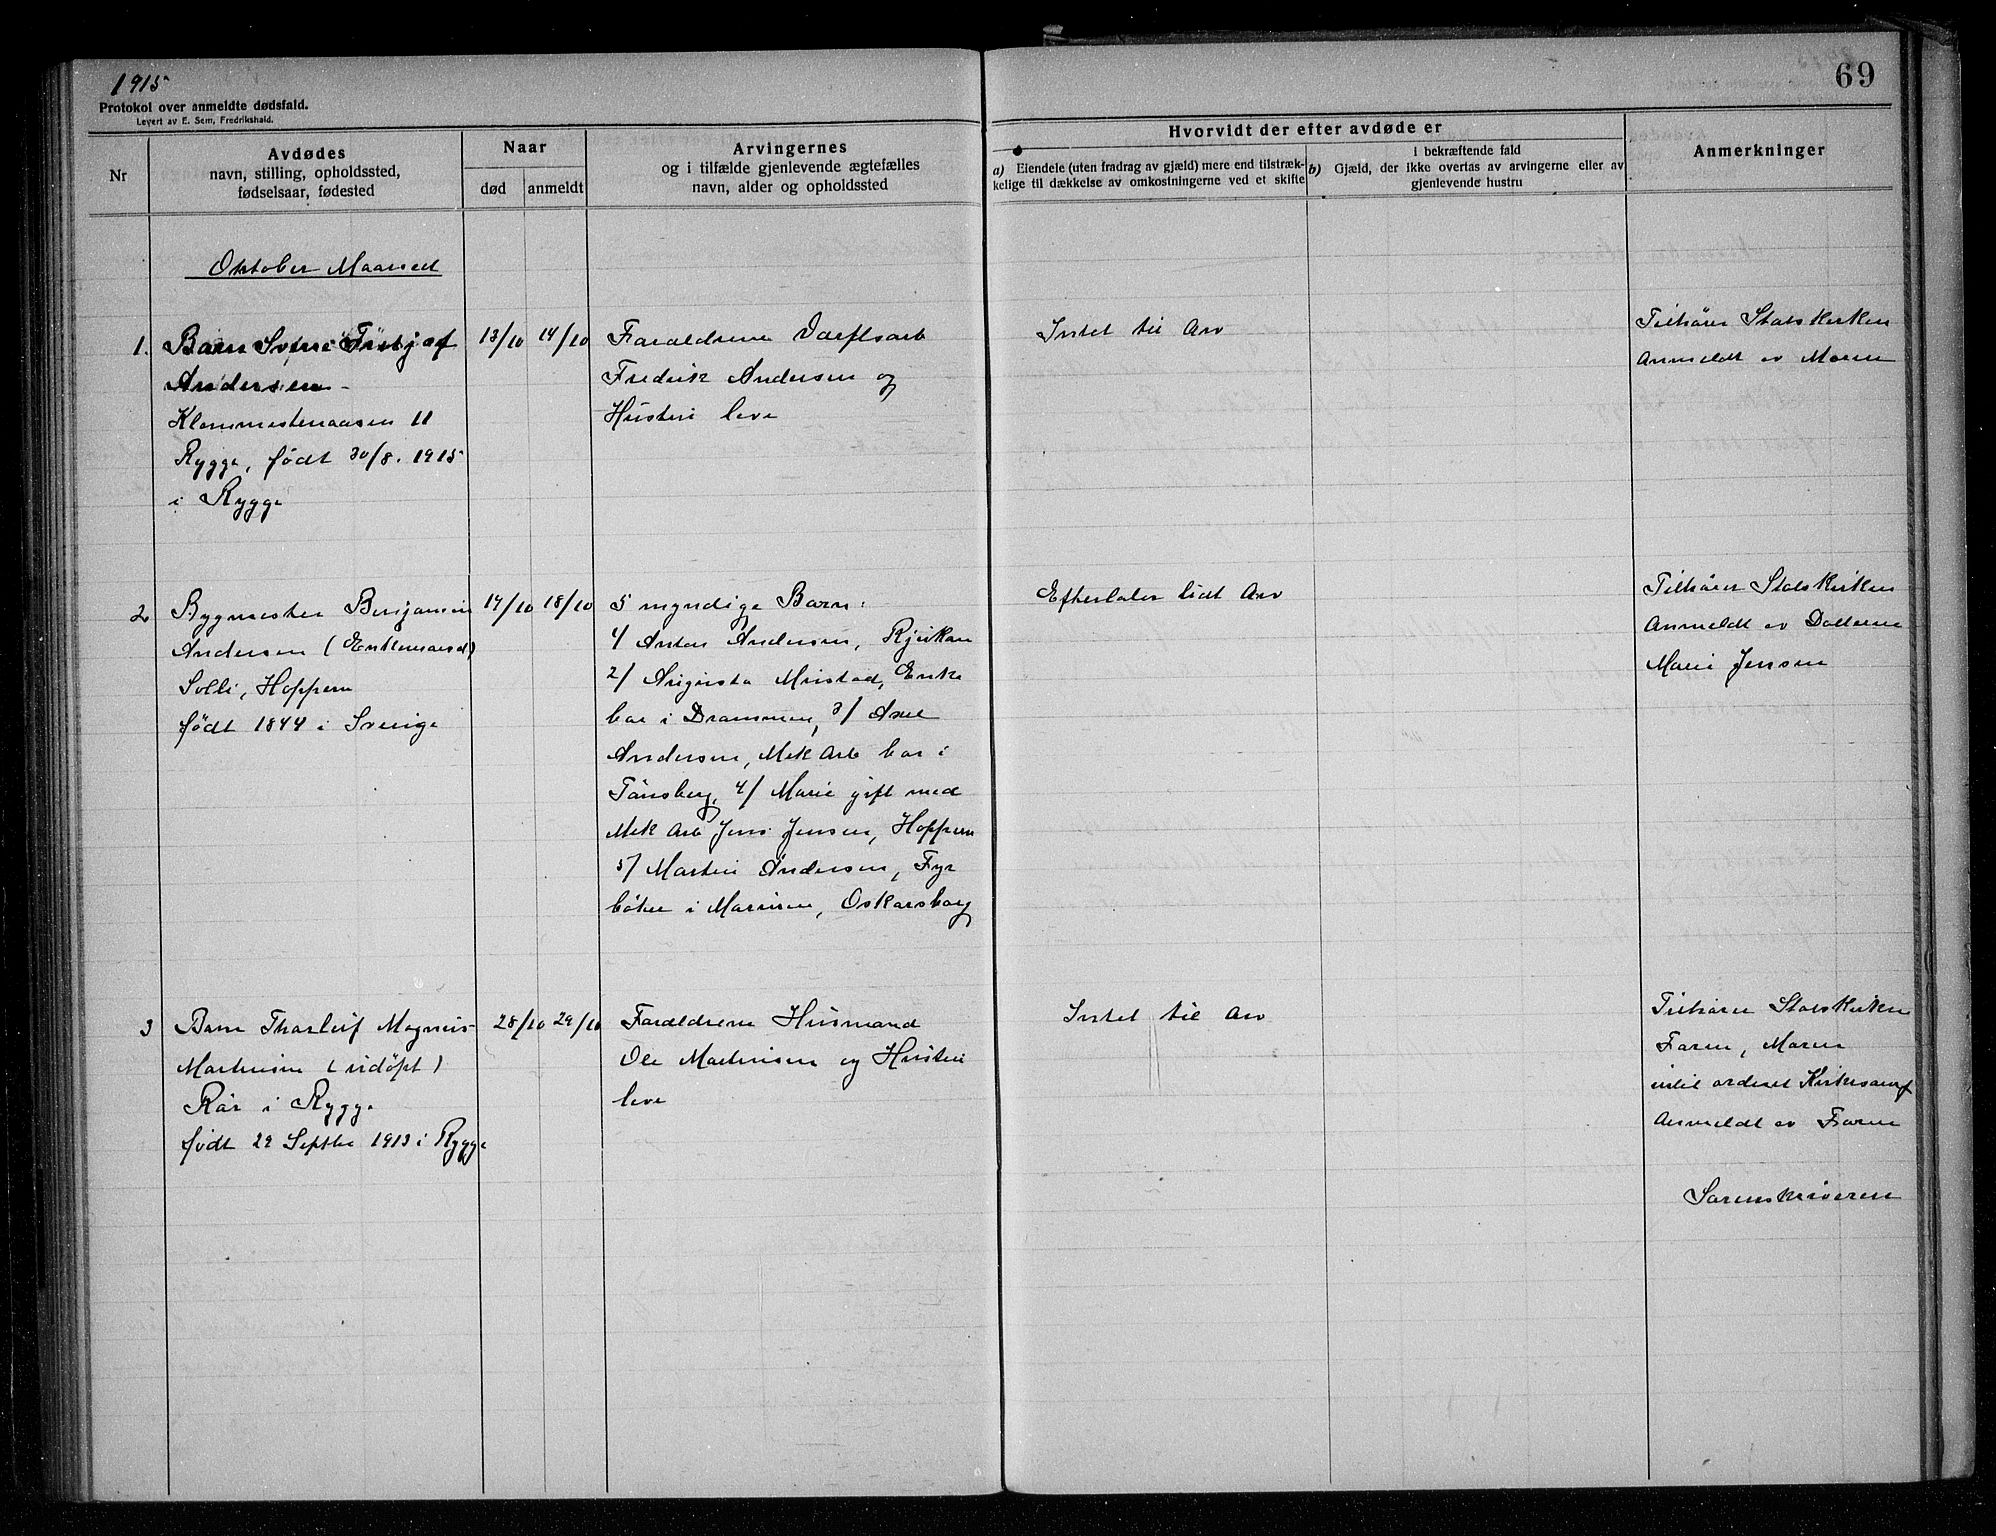 1915
Protokol over anmeldte dødsfald.
Levert av E. Sem, Fredrikshald.
69
Nr
Avdødes
navn, stilling, opholdssted,
fødselsaar, fødested
Naar
død
anmeldt
Arvingernes
og i tilfælde gjenlevende ægtefælles
navn, alder og opholdssted
Hvorvidt der efter avdøde er
a) Eiendele (uten fradrag av gjæld) mere end tilstræk-
kelige til dækkelse av omkostningerne ved et skifte
i bekræftende fald
b) Gjæld, der ikke overtas av arvingerne eller av
gjenlevende hustru
Anmerkninger
Oktober Maaned
1.
Barn Svend Fritjof
Andersen
Klommestenaasen 11
Rygge, født 30/8. 1915
i Rygge
13/10
14/10
Foraldrene Værftsarb
Fredrik Andersen og
Hustru leve
Intet til Arv
Tilhører Statskirken
Anmeldt av Moren
2
Bygmester Benjamin
Andersen (Enkemand)
Solli, Hoppern
født 1844 i Sverige
14/10
18/10
5 myndige Barn:
1/ Anton Andersen, Rjukan
2/ Augusta Mustad, Enke
bor i Drammen, 3/ Axel
Andersen, Mek Arb bor i
Tønsberg, 4/ Marie gift med
Mek Arb Jens Jensen, Hoppern
5/ Martin Andersen, Fyr
bøter i Marinen, Oskarsborg
Efterlater lidt Arv
Tilhører Statskirken
Anmeldt av Datteren
Marie Jensen
3
Barn Thorleif Magnus
Martinsen (udøpt)
Rør i Rygge
født 29 Septbr 1913 i Rygge
28/10
29/10
Foraldrene Husmand
Ole Martinsen og Hustru
leve
Intet til Arv
Tilhører Statskirken
Faren, Moren
intet ordnet Kirkesamf
Anmeldt av Faren
Sorenskriveren